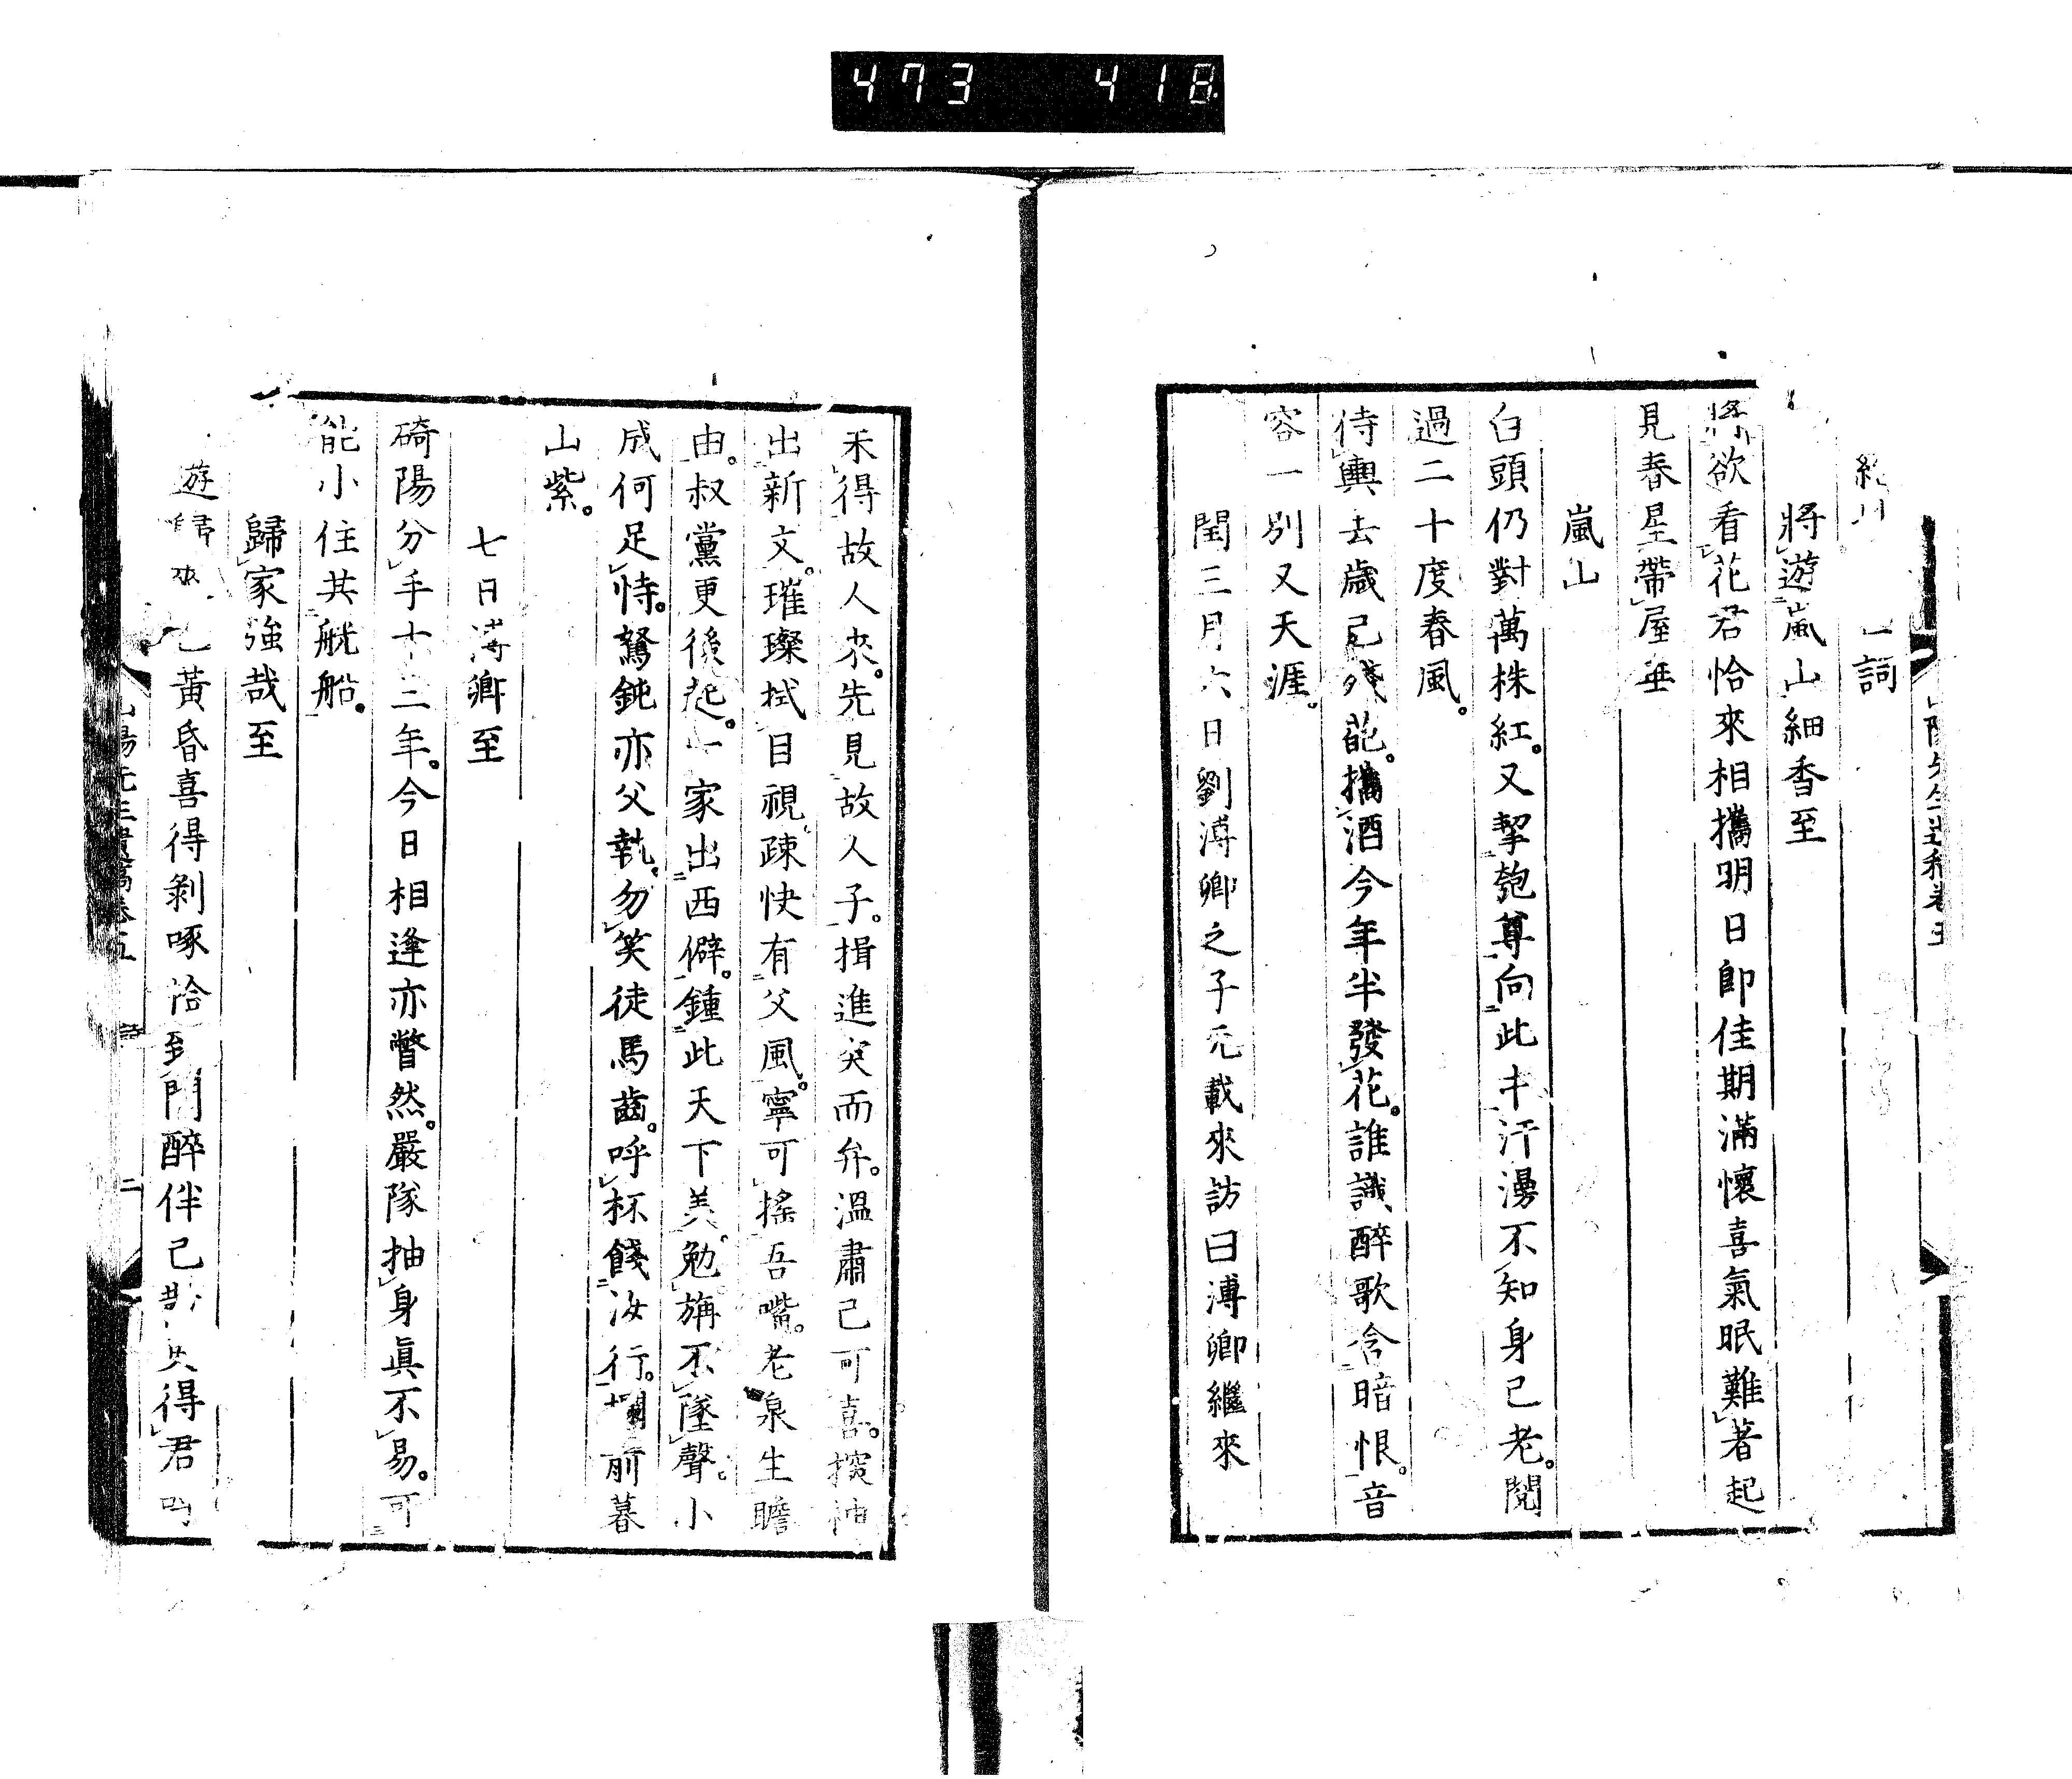 473 418
詞
將遊嵐山細香至
將欲看花君恰來相攜明日卽佳期滿懷喜氣眠難著起
見春星帶屋垂
嵐山
白頭仍對萬株紅。又挈匏尊向此中汗漫不知身已老。閱
過二十度春風。
侍輿去歲已殘葩。攜酒今年半發花。誰識醉歌含暗恨。音
容一別又天涯。
閏三月六日劉溥卿之子元載來訪曰溥卿繼來
未得故人來。先見故人子。揖進突而弁。溫肅已可喜。探袖
出新文。璀璨拭目視疎快有父風。寧可搖吾嘴。老泉生瞻
由。叔黨更後起。一家出西僻。鍾此天下美。勉旃不墜聲。小
成何足恃。駑鈍亦父執。勿笑徒馬齒。呼杯餞汝行。欄前暮
山紫。
七日溥卿至
碕陽分手十二年。今日相逢亦瞥然。嚴隊抽身眞不易。可
能小住共觥船。
歸家強哉至
遊歸來 已黃昏喜得剝啄恰到門醉伴已 得君
山陽先生遺稿卷五 詩 二